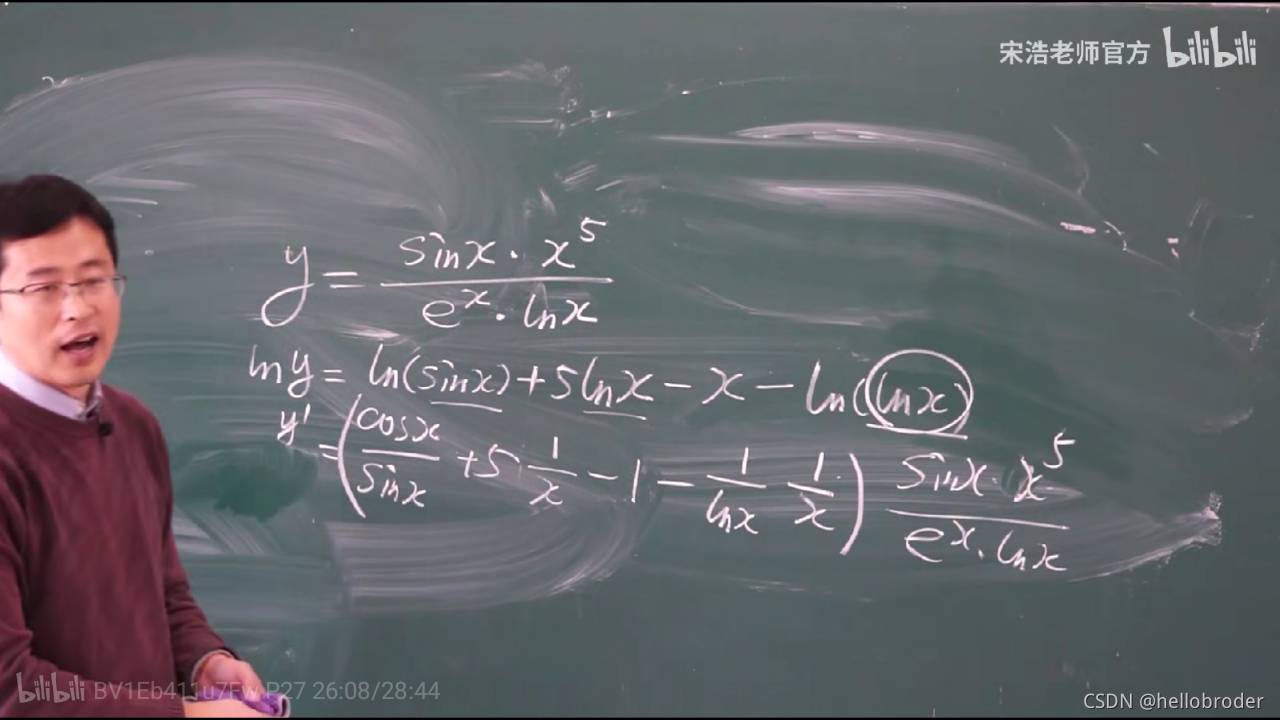 宋浩老师官方 bilibili
y = \frac{sinx · x^5}{e^x · lnx}
lny = ln(sinx) + 5lnx - x - ln(lnx)
y' = (\frac{cosx}{sinx} + 5 \frac{1}{x} - 1 - \frac{1}{lnx} \frac{1}{x}) \frac{sinx · x^5}{e^x · lnx}
bilibili BV1Eb411u7Fw P27 26:08/28:44
CSDN @hellobroder